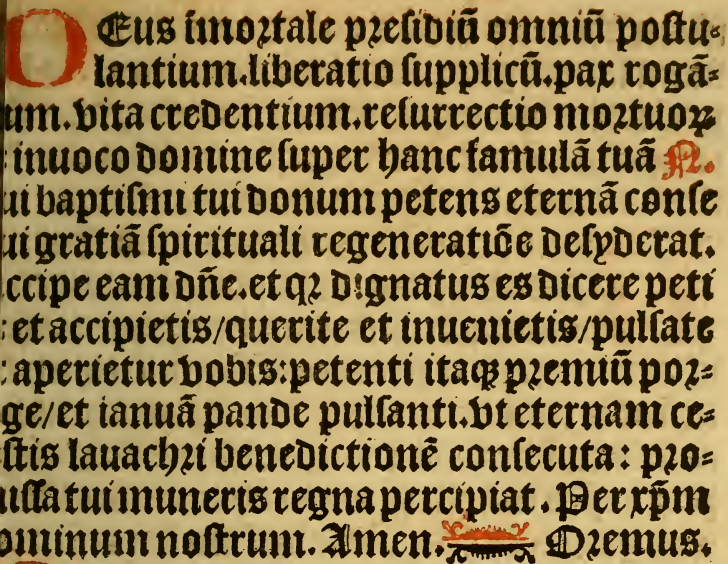 DEus imortale presidiũ omniũ postu⸗
lantium.liberatio supplicũ.pax rogã⸗
um.vita credentium.resurrectio mortuoꝝ
inuoco domine super hanc famulã tuã N.
ui baptismi tui donum petens eternã conse
ui gratiã spirituali regeneratiõe desyderat.
ccipe eam dñe.et qꝛ dignatus es dicere peti
: et accipietis/querite et inuenietis/pulsate
: aperietur vobis:petenti itaqꝫ premiũ por⸗
ge/et ianuã pande pulsanti.vt eternam ce⸗
stis lauachri benedictionẽ consecuta: pro⸗
issa tui muneris regna percipiat. Per xp̃m
ominum nostrum. Amen. Oremus.